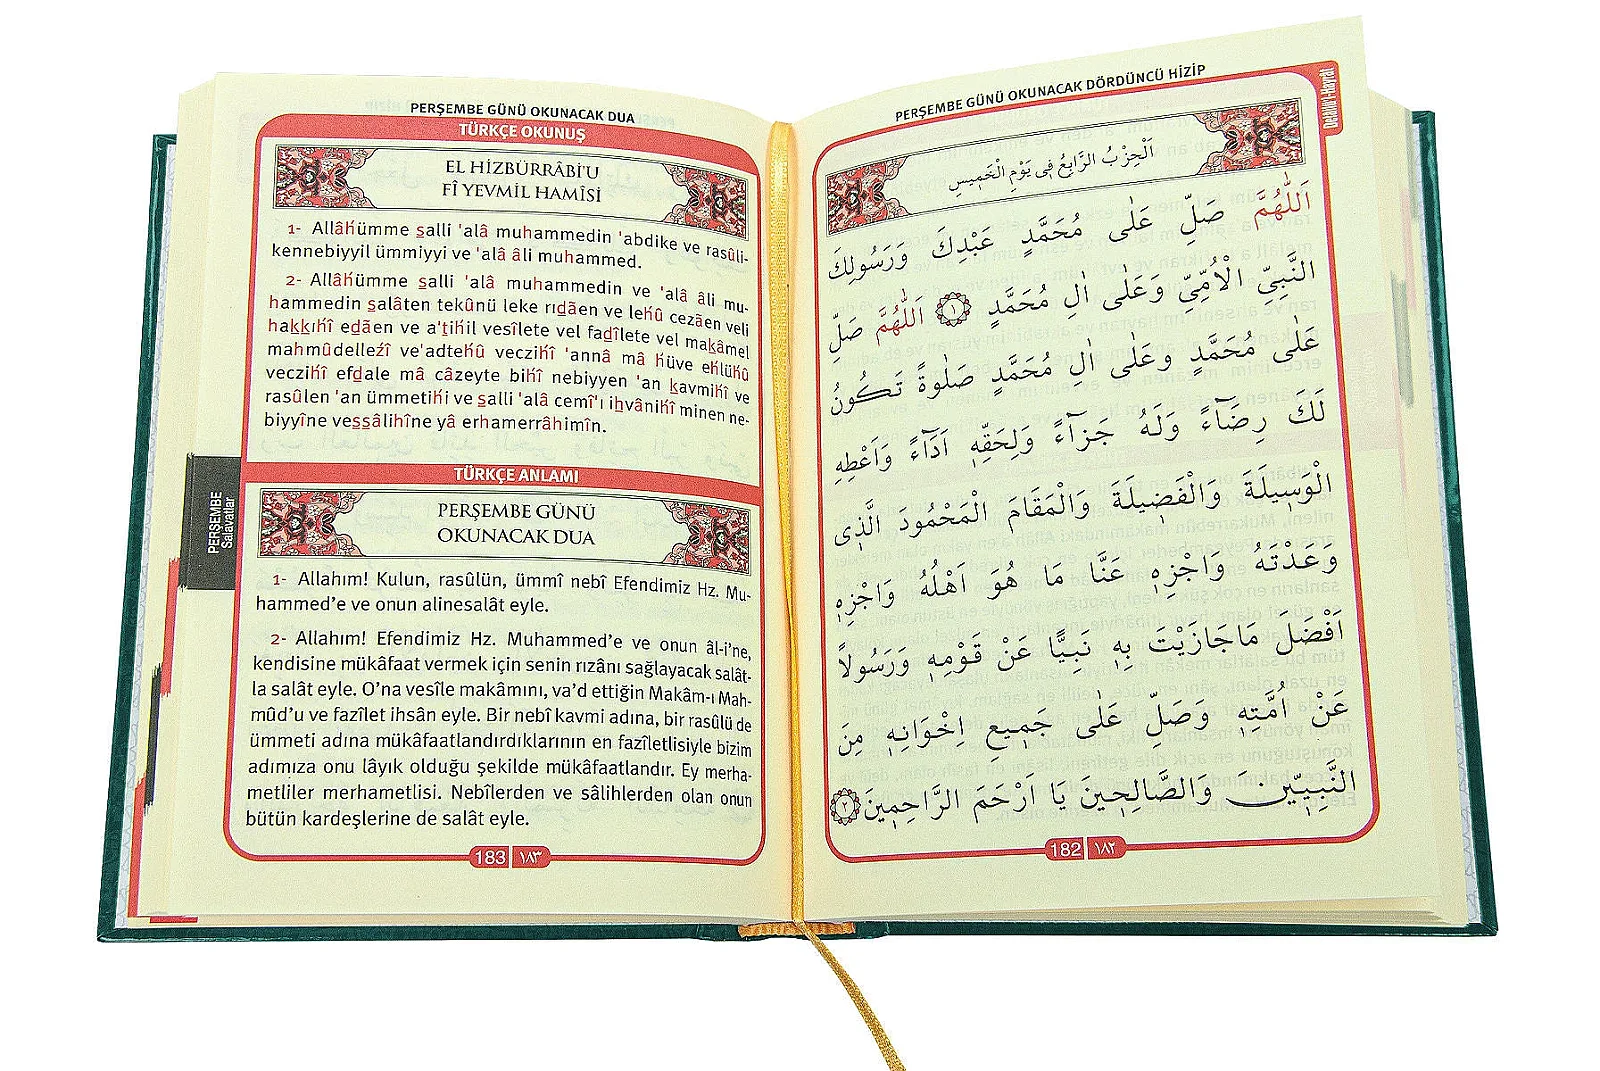 PERŞEMBE GÜNÜ OKUNACAK DÖRDÜNCÜ HİZİP
Delâil-i Hayrât
اَلْحِزْبُ الرَّابِعُ فِى يَوْمِ الْخَمِيسِ
اَللّٰهُمَّ صَلِّ عَلٰى مُحَمَّدٍ عَبْدِكَ وَرَسُولِكَ
النَّبِيِّ الْاُمِّيِّ وَعَلٰى اٰلِ مُحَمَّدٍ ١ اَللّٰهُمَّ صَلِّ
عَلٰى مُحَمَّدٍ وَعَلٰى اٰلِ مُحَمَّدٍ صَلٰوةً تَكُونُ
لَكَ رِضَاءً وَلَهُ جَزَاءً وَلِحَقِّهِ اَدَاءً وَاَعْطِهِ
الْوَسِيلَةَ وَالْفَضِيلَةَ وَالْمَقَامَ الْمَحْمُودَ الَّذِى
وَعَدْتَهُ وَاجْزِهِ عَنَّا مَا هُوَ اَهْلُهُ وَاجْزِهِ
اَفْضَلَ مَاجَازَيْتَ بِهِ نَبِيًّا عَنْ قَوْمِهِ وَرَسُولاً
عَنْ اُمَّتِهِ وَصَلِّ عَلٰى جَمِيعِ اِخْوَانِهِ مِنَ
النَّبِيِّينَ وَالصَّالِحِينَ يَا اَرْحَمَ الرَّاحِمِينَ ٢
182 ١٨٢
PERŞEMBE GÜNÜ OKUNACAK DUA
TÜRKÇE OKUNUŞ
EL HİZBÜRRÂBİ'U
FÎ YEVMİL HAMÎSİ
1- Allâhümme salli 'alâ muhammedin 'abdike ve rasûli-
kennebiyyil ümmiyyi ve 'alâ âli muhammed.
2- Allâhümme salli 'alâ muhammedin ve 'alâ âli mu-
hammedin salâten tekûnü leke rıdâen ve lehû cezâen veli
hakkıhî edâen ve a'tıhil vesîlete vel fadîlete vel makâmel
mahmûdellezî ve'adtehû veczihî 'annâ mâ hüve ehlühû
veczihî efdale mâ câzeyte bihî nebiyyen 'an kavmihî ve
rasûlen 'an ümmetihî ve salli 'alâ cemî'ı ihvânihî minen ne-
biyyîne vessâlihîne yâ erhamerrâhimîn.
TÜRKÇE ANLAMI
PERŞEMBE GÜNÜ
OKUNACAK DUA
1- Allahım! Kulun, rasûlün, ümmî nebî Efendimiz Hz. Mu-
hammed'e ve onun alinesalât eyle.
2- Allahım! Efendimiz Hz. Muhammed'e ve onun âl-i'ne,
kendisine mükâfaat vermek için senin rızânı sağlayacak salât-
la salât eyle. O'na vesîle makâmını, va'd ettiğin Makâm-ı Mah-
mûd'u ve fazîlet ihsân eyle. Bir nebî kavmi adına, bir rasûlü de
ümmeti adına mükâfaatlandırdıklarının en fazîletlisiyle bizim
adımıza onu lâyık olduğu şekilde mükâfaatlandır. Ey merha-
metliler merhametlisi. Nebîlerden ve sâlihlerden olan onun
bütün kardeşlerine de salât eyle.
183 ١٨٣
PERŞEMBE
Salavatlar